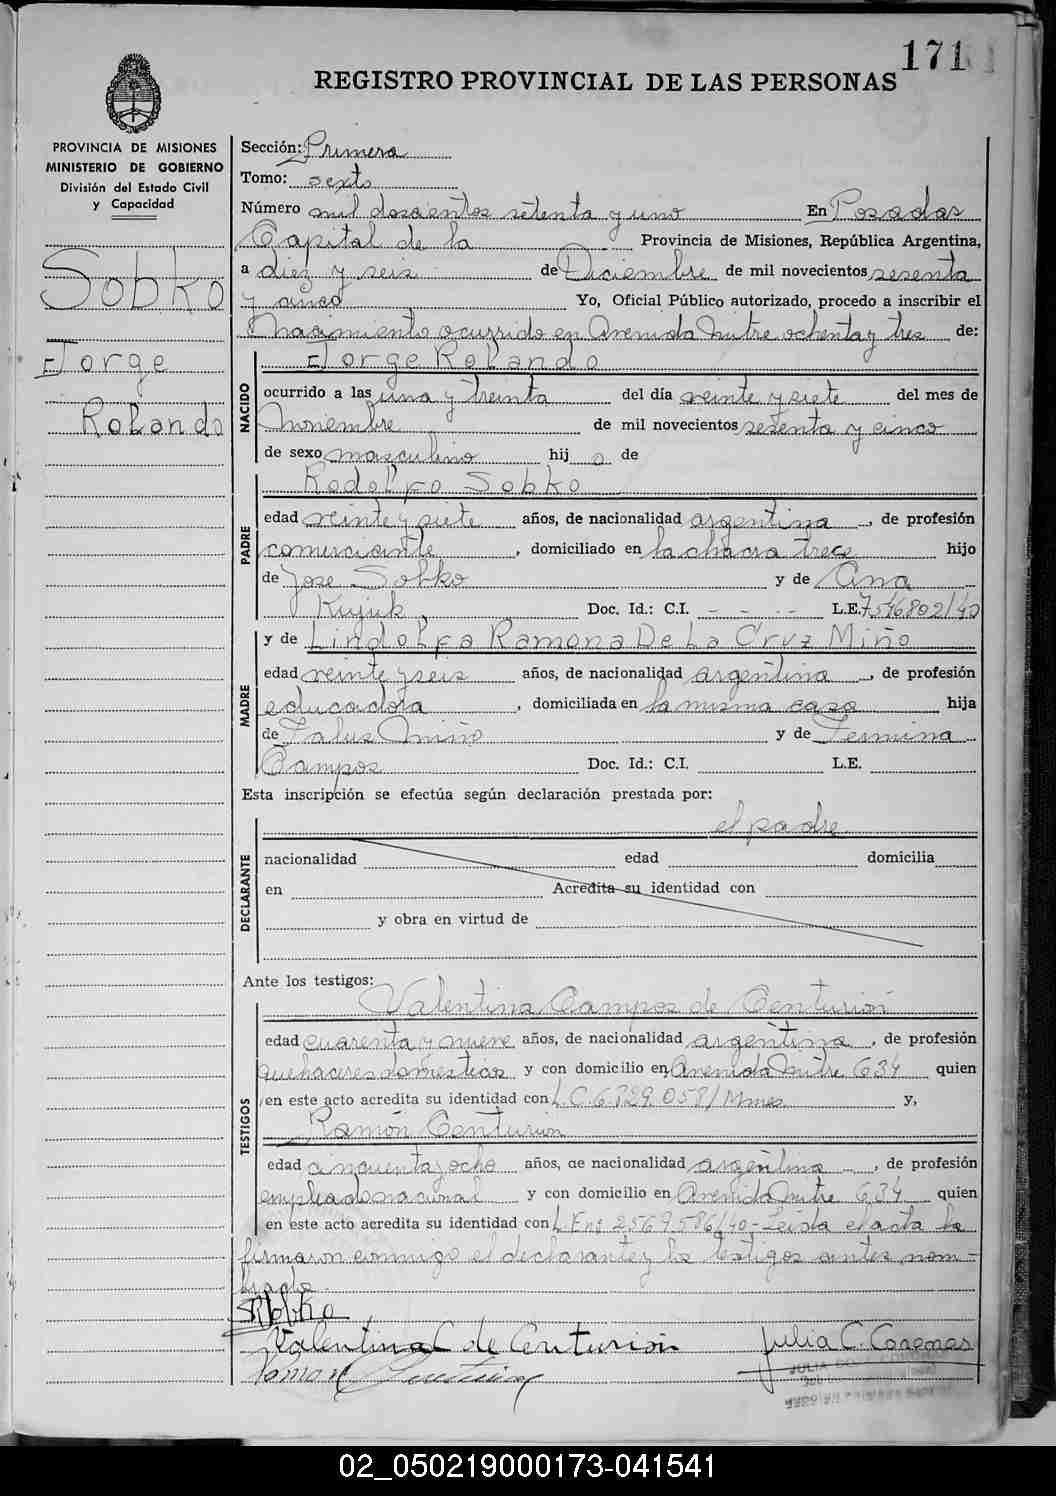 171
REGISTRO PROVINCIAL DE LAS PERSONAS
PROVINCIA DE MISIONES
MINISTERIO DE GOBIERNO
División del Estado Civil
y Capacidad
Sobko
Jorge
Rolando
Sección: Primera
Tomo: sexto
Número mil doscientos setenta y uno En Posadas
Capital de la Provincia de Misiones, República Argentina,
a diez y seis de Diciembre de mil novecientos sesenta
y cinco Yo, Oficial Público autorizado, procedo a inscribir el
Nacimiento ocurrido en Avenida Mitre ochenta y tres de:
NACIDO
Jorge Rolando
ocurrido a las una y treinta del día veinte y siete del mes de
Noviembre de mil novecientos sesenta y cinco
de sexo masculino hij o de
PADRE
Rodolfo Sobko
edad veinte y siete años, de nacionalidad argentina, de profesión
comerciante, domiciliado en la chacra trece hijo
de Jose Sobko y de Ana
Kujuk, Doc. Id.: C.I. - - - - L.E. 7546802/40
MADRE
y de Lindolfa Ramona De La Cruz Miño
edad veinte y seis años, de nacionalidad argentina, de profesión
educadora, domiciliada en la misma casa hija
de Miño y de Fermina
Campos Doc. Id.: C.I. L.E.
Esta inscripción se efectúa según declaración prestada por:
el padre
DECLARANTE
nacionalidad edad domicilia
en Acredita su identidad con
y obra en virtud de
Ante los testigos:
TESTIGOS
Valentina Campos de Centurión
edad cuarenta y nueve años, de nacionalidad argentina, de profesión
quehaceres domesticos y con domicilio en Avenida Mitre 634 quien
en este acto acredita su identidad con L.C. 6.829.058/Mnes y,
Ramón Centurión
edad cincuenta y ocho años, de nacionalidad argentina, de profesión
empleado nacional y con domicilio en Avenida Mitre 634 quien
en este acto acredita su identidad con L. Enr 2569.586/40- Leida el acta la
firmaron conmigo el declarante y los testigos antes nom-
brados
RSobko
Valentina C de Centurión Julia C. Coremas
Ramon Centurion
02_050219000173-041541